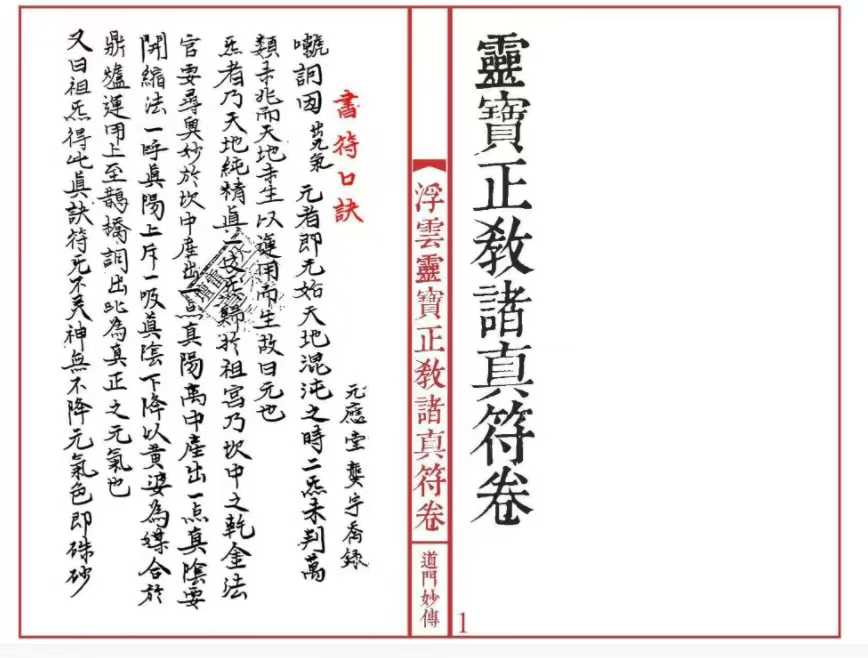 靈寶正教諸真符卷
浮雲靈寶正教諸真符卷
道門妙傳
1
書符口訣
元應堂龔宇喬錄
噺詞因出元氣元者即元始天地混沌之時二炁未判萬
類未兆而天地未生以運用而生故曰元也
炁者乃天地純精真一炁歸於祖宮乃坎中之乾金法
官要尋奧妙於坎中產出一点真陽离中產出一点真陰要
開縮法一呼真陽上斥一吸真陰下降以黃婆為媒合於
鼎爐運用上至鵲橋詞出此為真正之元氣也
又曰祖炁得此真訣符无不灵神無不降元氣色即硃砂